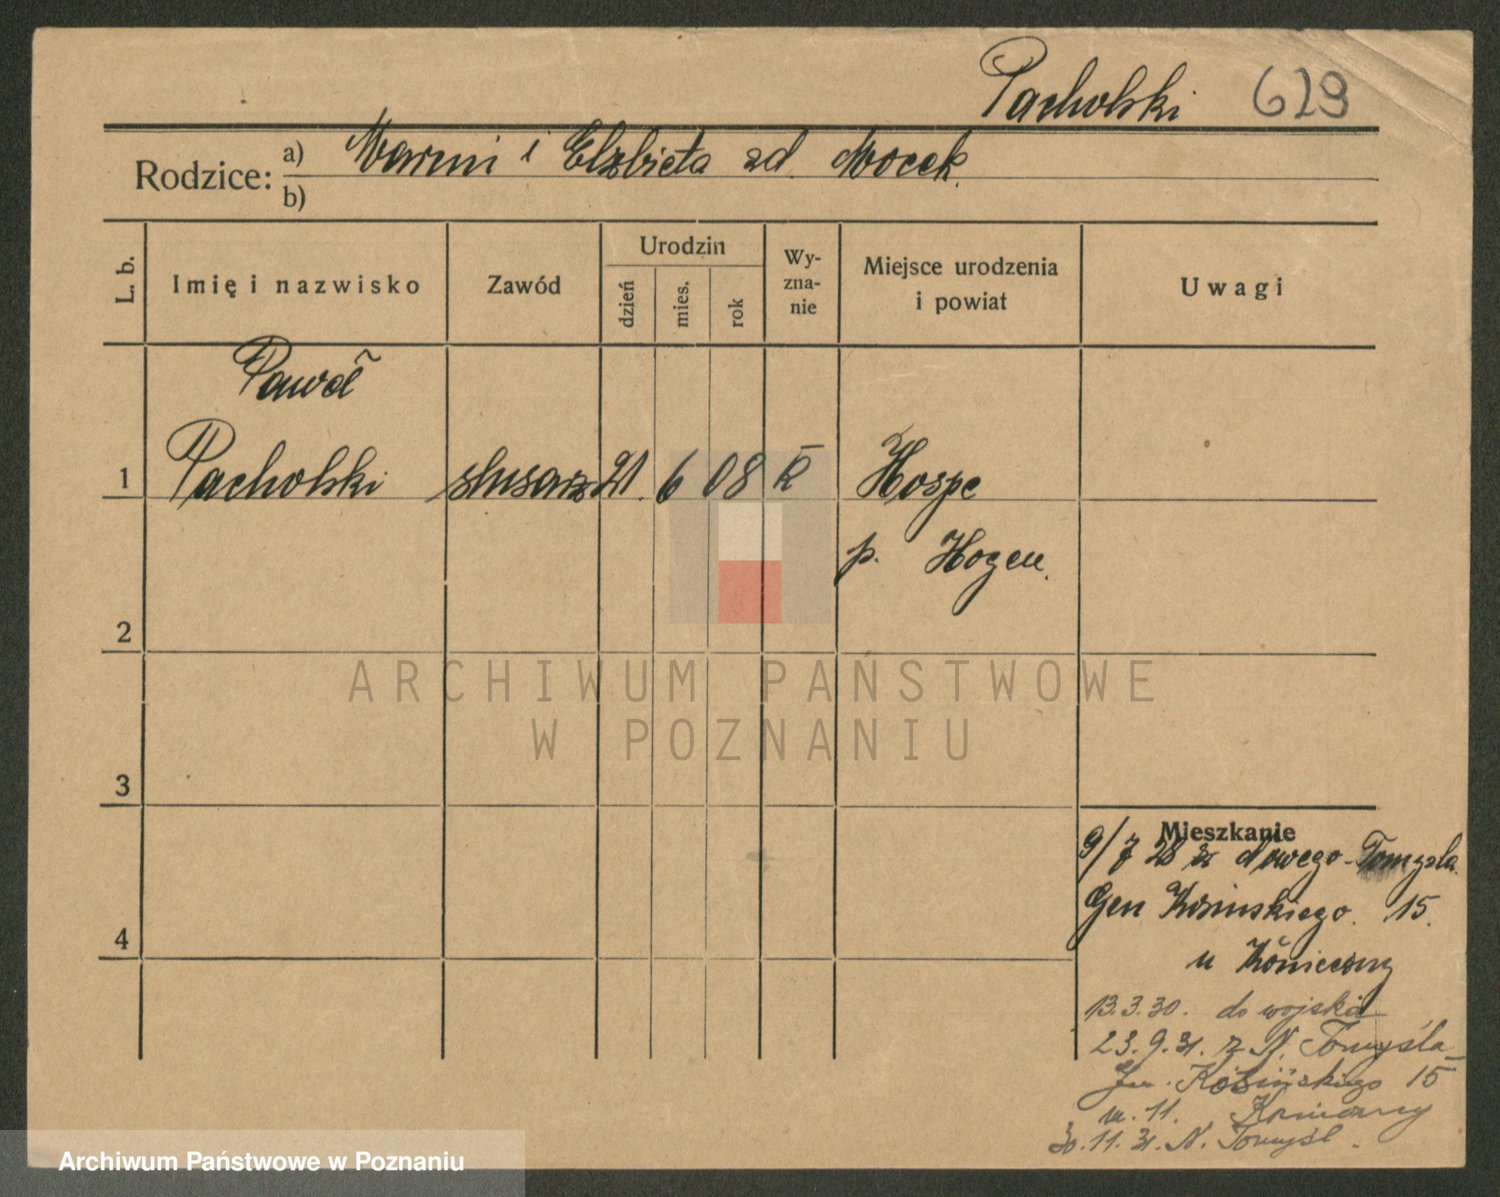 Pacholski 629
Rodzice: a) i Elżbieta zd. Mocek.
b)
L. b. Imię i nazwisko Zawód Urodzin dzień mies. rok Wy-zna-nie Miejsce urodzenia i powiat Uwagi
Paweł
1 Pacholski slusarz 21. 6 08 k Hospe
p. Hogen.
2
ARCHIWUM PAŃSTWOWE
W POZNANIU
3
Mieszkanie
9/7 28 z Tomysla.
Gen Kosinskiego. 15.
u
4
13.3.30. do wojska
23.9.31. z N. Tomyśla
Gen. Kosińskiego 15
m. 11.
30.11.31. N. Tomyśl.
Archiwum Państwowe w Poznaniu